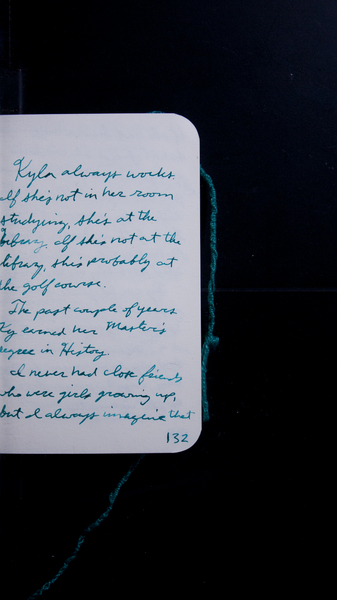 Kyla always works.
If she's not in her room
studying, she's at the
library. If she's not at the
library, she's probably at
the golf course.
The past couple of years
Ky earned her Master's
egree in History.
I never had close friends
who were girls growing up,
but I always imagine that
132